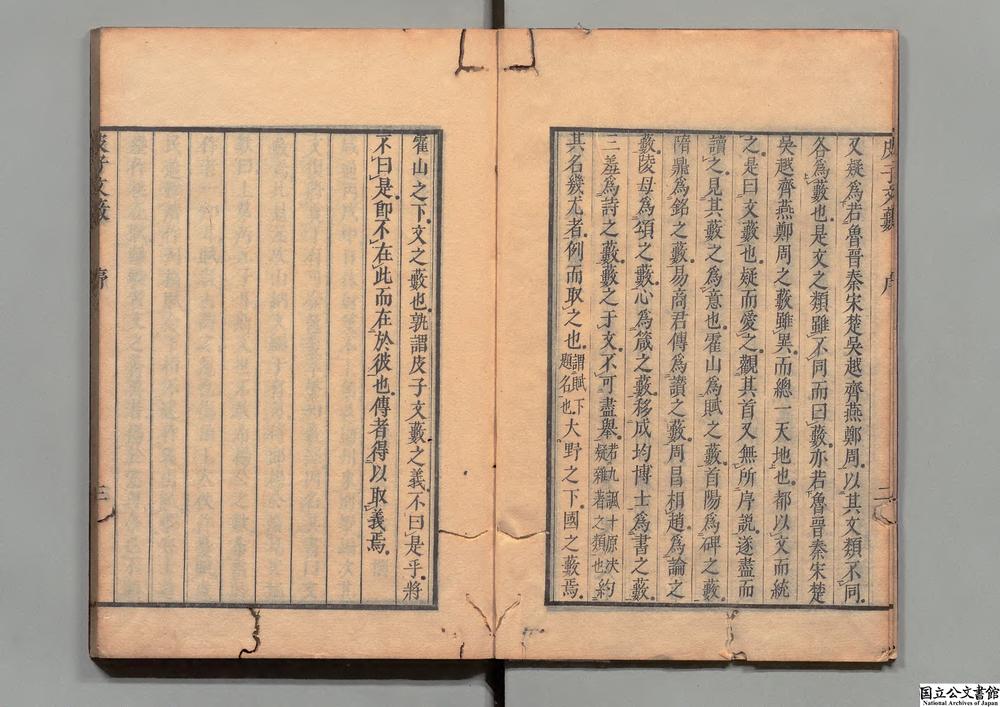 皮子文藪
序
二
又疑爲若魯晉秦宋楚吳越齊燕鄭周以其文類不同
各爲藪也是文之類雖不同而曰藪亦若魯晉秦宋楚
吳越齊燕鄭周之藪雖異而總一天地也都以文而統
之是曰文藪也疑而愛之觀其首又無所序說遂盡而
讀之見其藪之爲意也霍山爲賦之藪首陽爲碑之藪
隋鼎爲銘之藪易商君傳爲讚之藪周昌相趙爲論之
藪陵母爲頌之藪心爲箴之藪移成均博士爲書之藪
三羞爲詩之藪藪之于文不可盡舉若九諷十原決疑雜著之類也約
其名幾尤者例而取之也謂賦下題名也大野之下國之藪焉
霍山之下文之藪也孰謂皮子文藪之義不曰是乎將
不曰是卽不在此而在於彼也傳者得以取義焉
皮子文藪
序
三
国立公文書館
National Archives of Japan